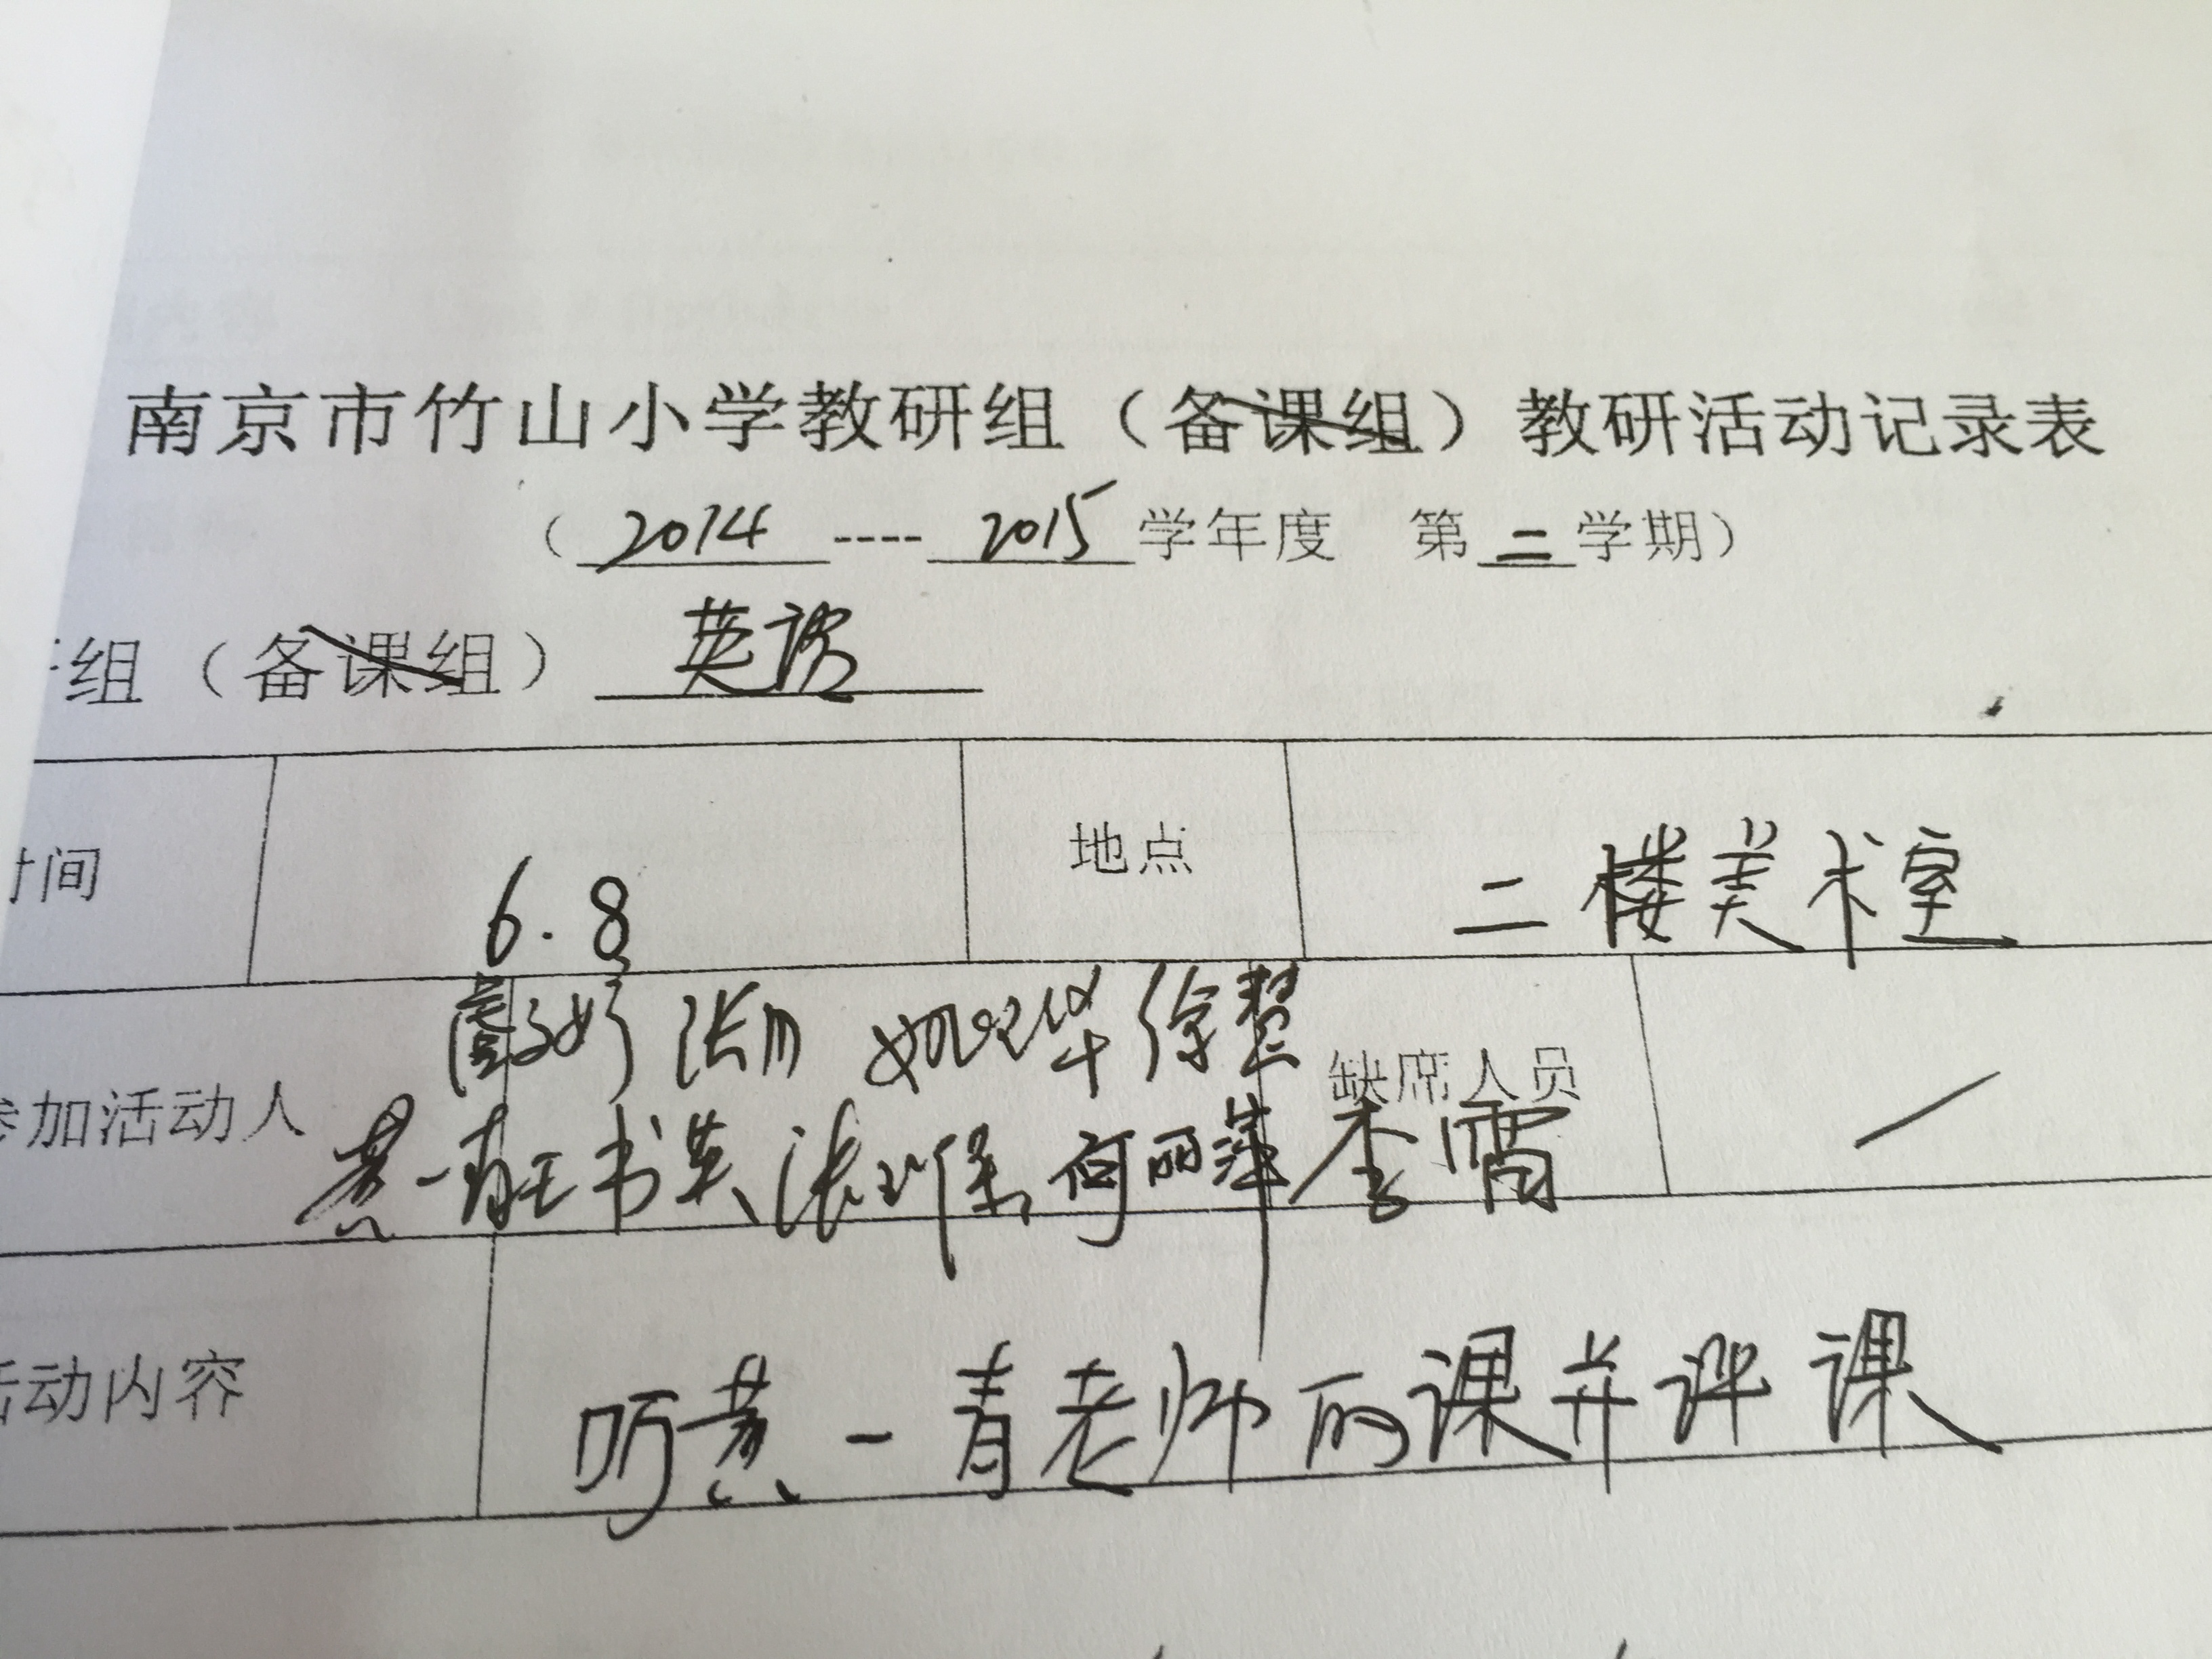 南京市竹山小学教研组（备课组）教研活动记录表
（2014----2015学年度 第二学期）
组（备课组）英语
时间 6.8 地点 二楼美术室
张 徐慧
参加活动人 缺席人员 /
黄一青 王书英 张 何丽萍 李霞
活动内容 听黄一青老师的课并评课